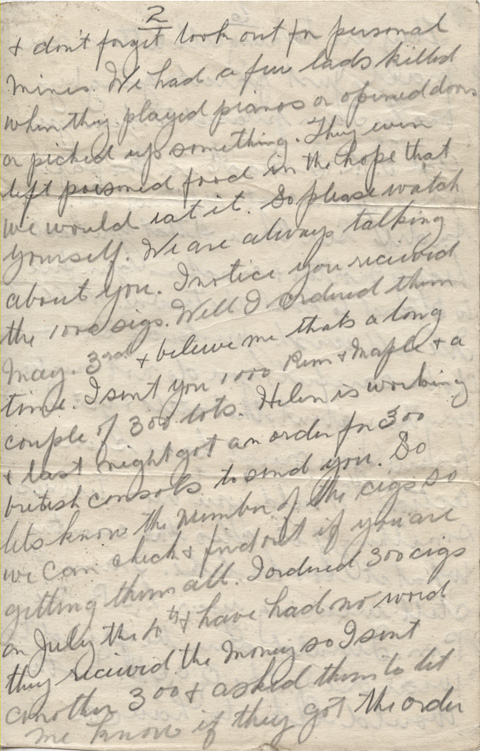 2
& don't forget look out for personal
mines. We had a few lads killed
when they played pianos or opened doors
or picked up something. They even
left poisoned food in the hope that
we would eat it. So please watch
yourself. We are always talking
about you. I notice you received
the 1000 sigs. Well I ordered them
May. 3rd & believe me thats a long
time. I sent you 1000 Rum & Maple & a
couple of 300 lots. Helen is working
& last night got an order for 300
british consols to send you. So
lets know the number of the cigs so
we can check & find out if you are
getting them all. I ordered 300 cigs
on July the 10th & have had no word
they recieved the money so I sent
another 300 & asked them to let
me know if they got the order